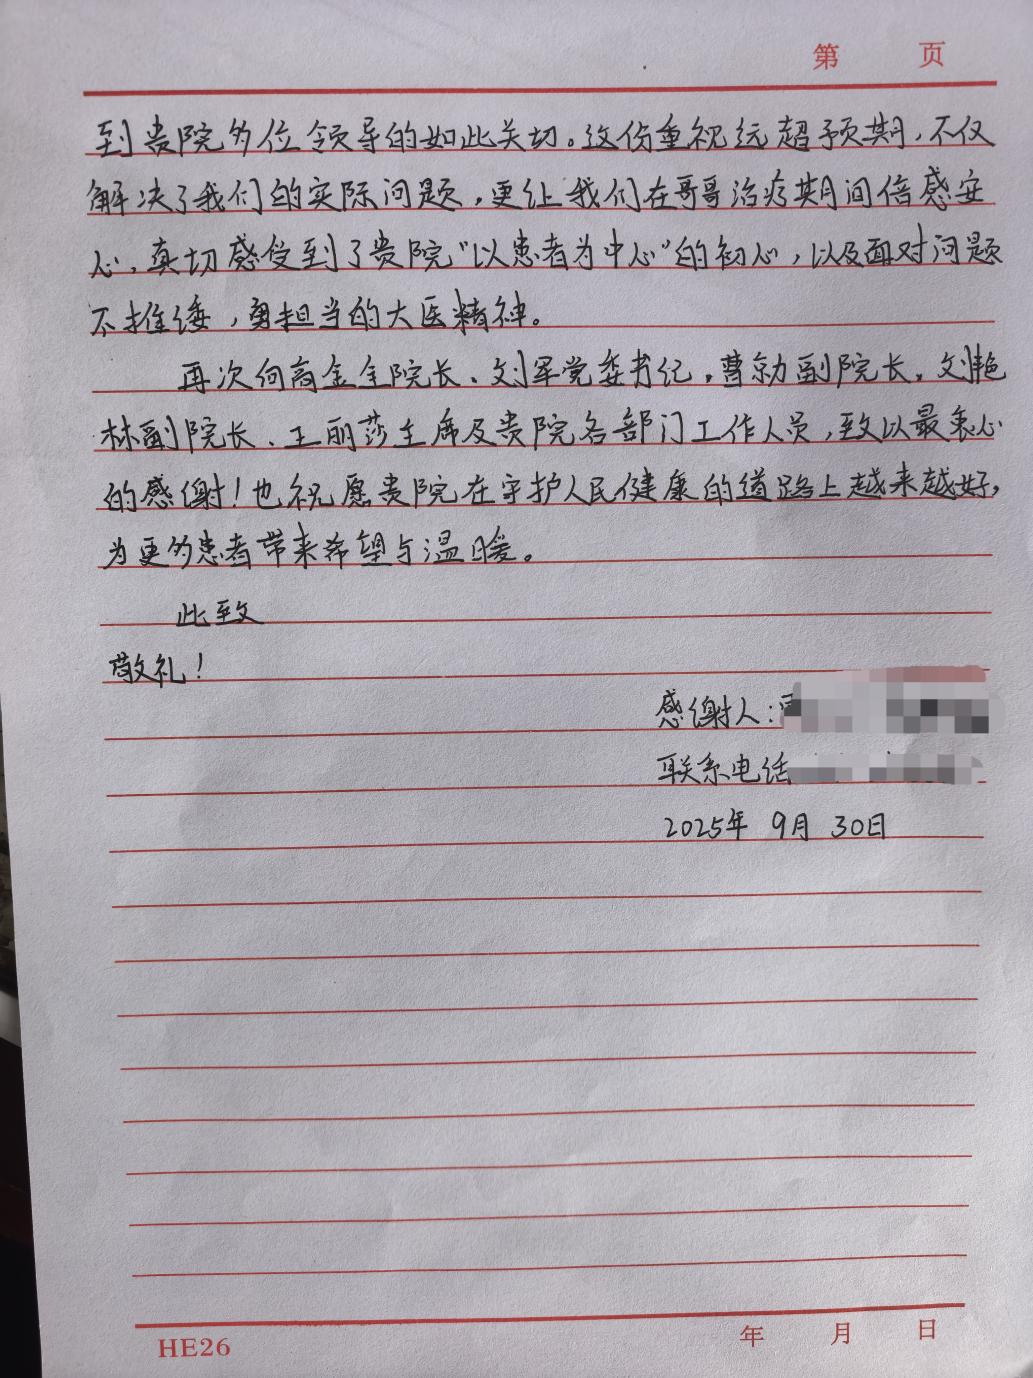 第 页
到贵院多位领导的如此关切。这份重视远超预期，不仅
解决了我们的实际问题，更让我们在哥哥治疗期间倍感安
心，真切感受到了贵院“以患者为中心”的初心，以及面对问题
不推诿，勇担当的大医精神。
再次向高金全院长、刘军党委书记，曹京勍副院长，刘艳
林副院长、王丽莎主席及贵院各部门工作人员，致以最衷心
的感谢！也祝愿贵院在守护人民健康的道路上越来越好，
为更多患者带来希望与温暖。
此致
敬礼！
感谢人：
联系电话
2025年 9月 30日
HE26 年 月 日